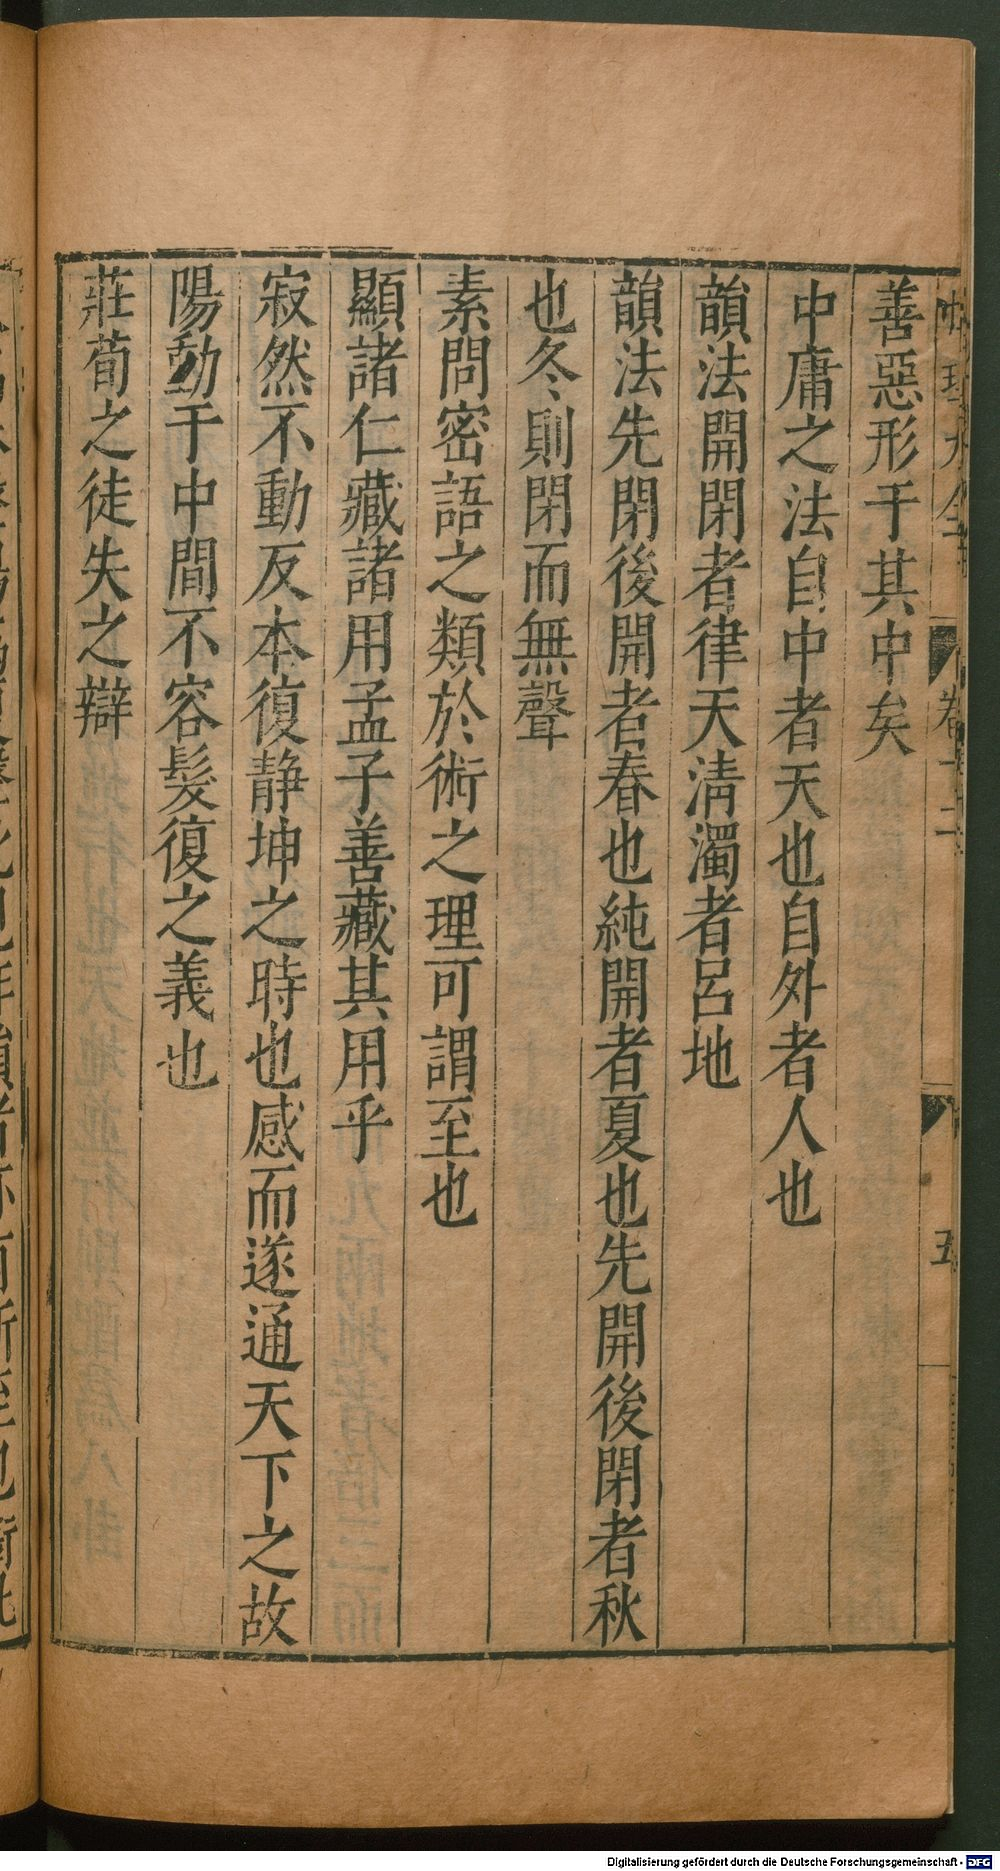 性理大全
卷十二
五
善惡形于其中矣
中庸之法自中者天也自外者人也
韻法開閉者律天淸濁者呂地
韻法先閉後開者春也純開者夏也先開後閉者秋
也冬則閉而無聲
素問密語之類於術之理可謂至也
顯諸仁藏諸用孟子善藏其用乎
寂然不動反本復靜坤之時也感而遂通天下之故
陽動于中間不容髮復之義也
莊荀之徒失之辯
Digitalisierung gefördert durch die Deutsche Forschungsgemeinschaft - DFG